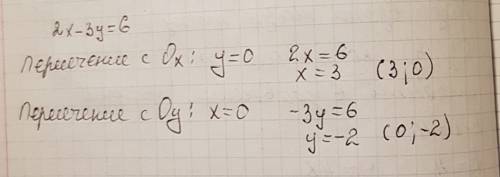 2x-3y=6
Пересечение с Ox: y=0 2x=6
x=3 (3;0)
Пересечение с Oy: x=0 -3y=6
y=-2 (0;-2)